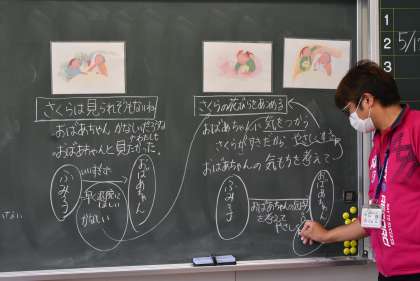 さくらは見られそうもないね
おばあちゃん かなしいだろうな
わたしも
おばあちゃんと見たかった。
ふみ子
いいすぎた
早く退院してほしい
かなしい
おばあちゃん
さくらの花びらをあつめる
おばあちゃんに気をつかう
さくらがすきだから やさしさ
おばあちゃんの気もちを考えて
ふみ子
おばあちゃんの気もち
を考えて
やさしい
おばあちゃん
1
2
3
4
5/1